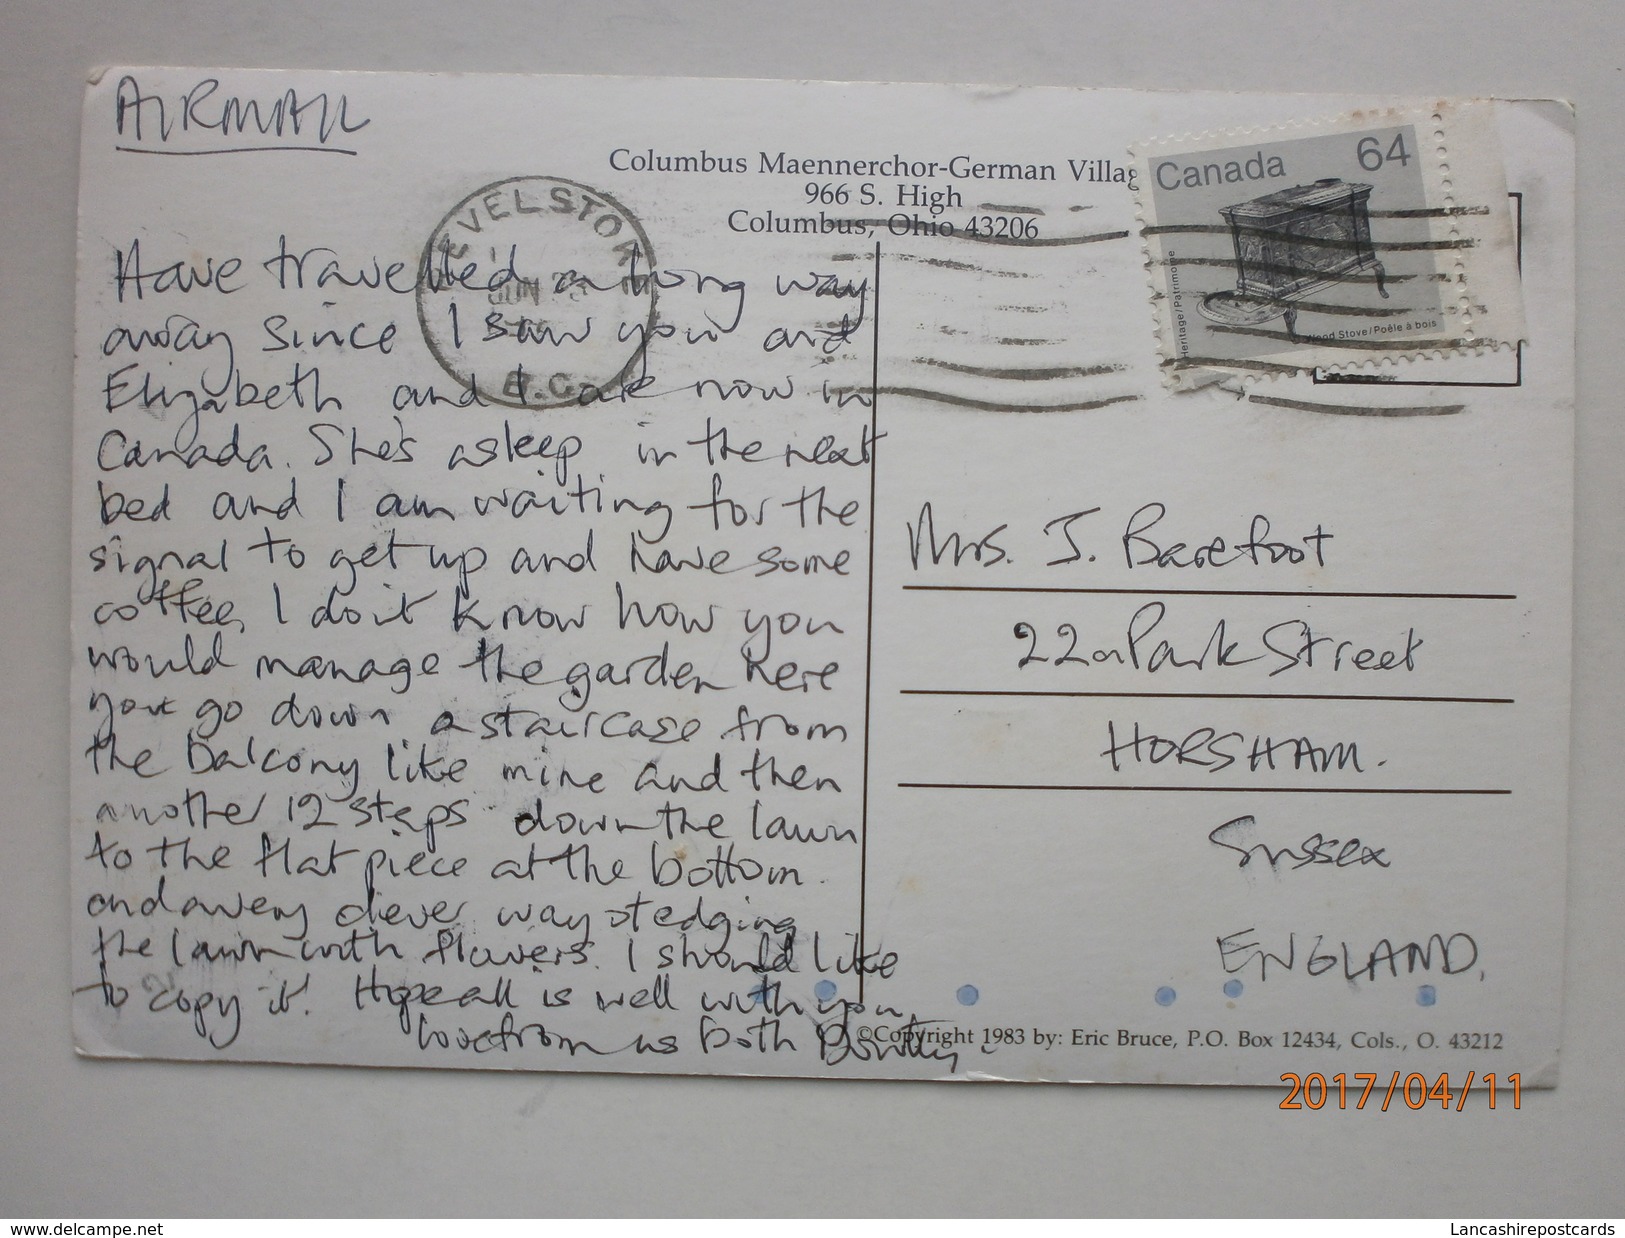 AIRMAIL
Columbus Maennerchor-German Villag
966 S. High
Columbus, Ohio 43206
EVELSTOK
JUN
B.C.
Canada 64
Heritage/Patrimoine
Wood Stove/Poêle à bois
Have travelled a long way
away since I saw you and
Elizabeth and I are now in
Canada. She's asleep in the next
bed and I am waiting for the
signal to get up and have some
coffee, I don't know how you
would manage the garden here
you go down a staircase from
the balcony like mine and then
another 12 steps down the lawn
to the flat piece at the bottom.
and a very clever way of edging
the lawn with flowers. I should like
to copy it! Hope all is well with you,
love from us both
Mrs. J. Barefoot
22a Park Street
HORSHAM.
Sussex
ENGLAND.
©Copyright 1983 by: Eric Bruce, P.O. Box 12434, Cols., O. 43212
2017/04/11
www.delcampe.net
Lancashirepostcards